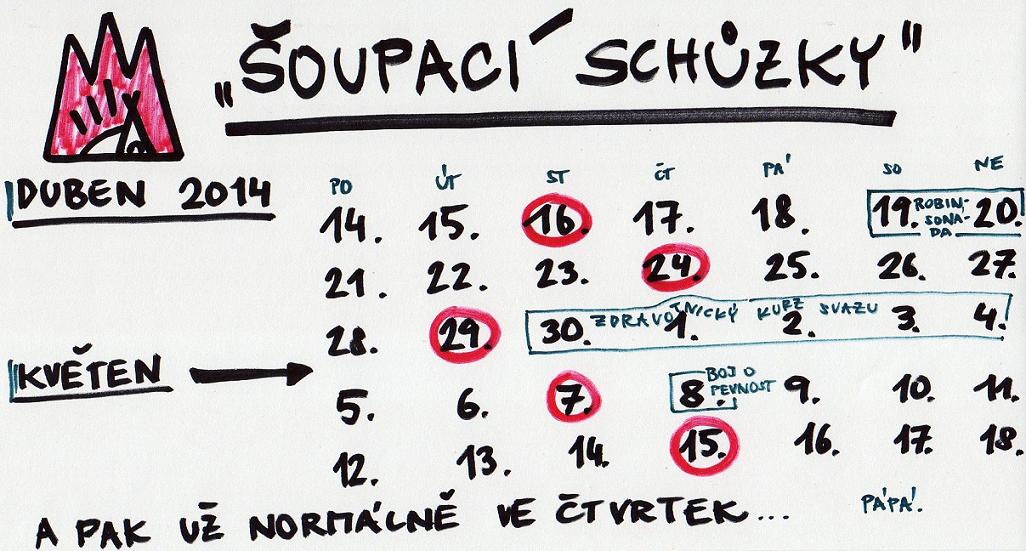 „ŠOUPACÍ SCHŮZKY“
DUBEN 2014
PO ÚT ST ČT PÁ SO NE
14. 15. 16. 17. 18. 19. ROBIN-SONA-DA 20.
21. 22. 23. 24. 25. 26. 27.
28. 29. 30. 1. 2. 3. 4.
ZDRAVOTNICKÝ KURZ SVAZU
KVĚTEN
5. 6. 7. 8. 9. 10. 11.
BOJ O PEVNOST
12. 13. 14. 15. 16. 17. 18.
A PAK UŽ NORMÁLNĚ VE ČTVRTEK...
PÁPÁ!